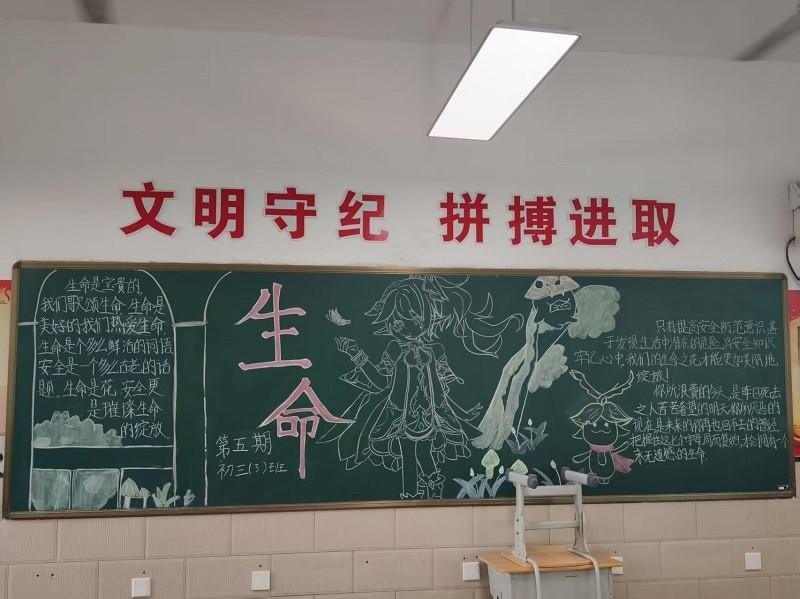 文明守纪 拼搏进取
生命是宝贵的,
我们歌颂生命,生命是
美好的,我们热爱生命,
生命是个多么鲜活的词语,
安全是一个多么古老的话
题,生命是花,安全更
是璀璨生命
的绽放
生命
第五期
初三(3)班
只有提高安全防范意识,善
于发现生活中潜在的危险,将安全知识
牢记心中,我们的生命之花才能更加美丽地
绽放!
你所浪费的今天,是昨日死去
之人苦苦奢望的明天,你所厌恶的
现在是未来的你再也回不去的曾经
才会拥有一个
来无遗憾的生命.